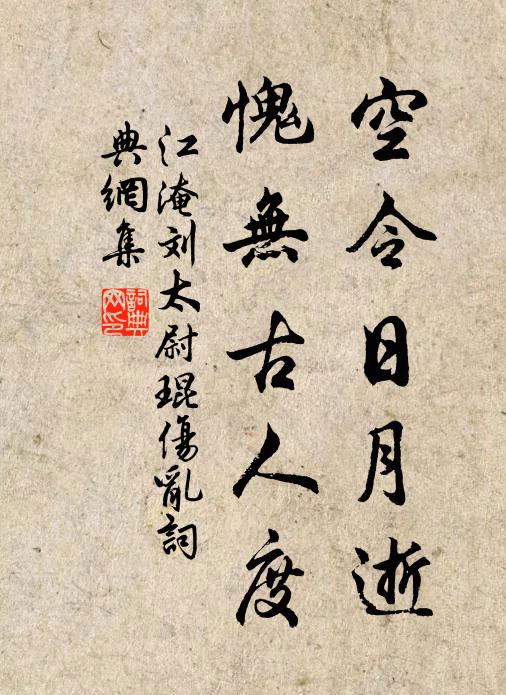 空令日月逝
愧無古人度
江淹刘太尉琨傷亂詞
典網集
詞典
网印